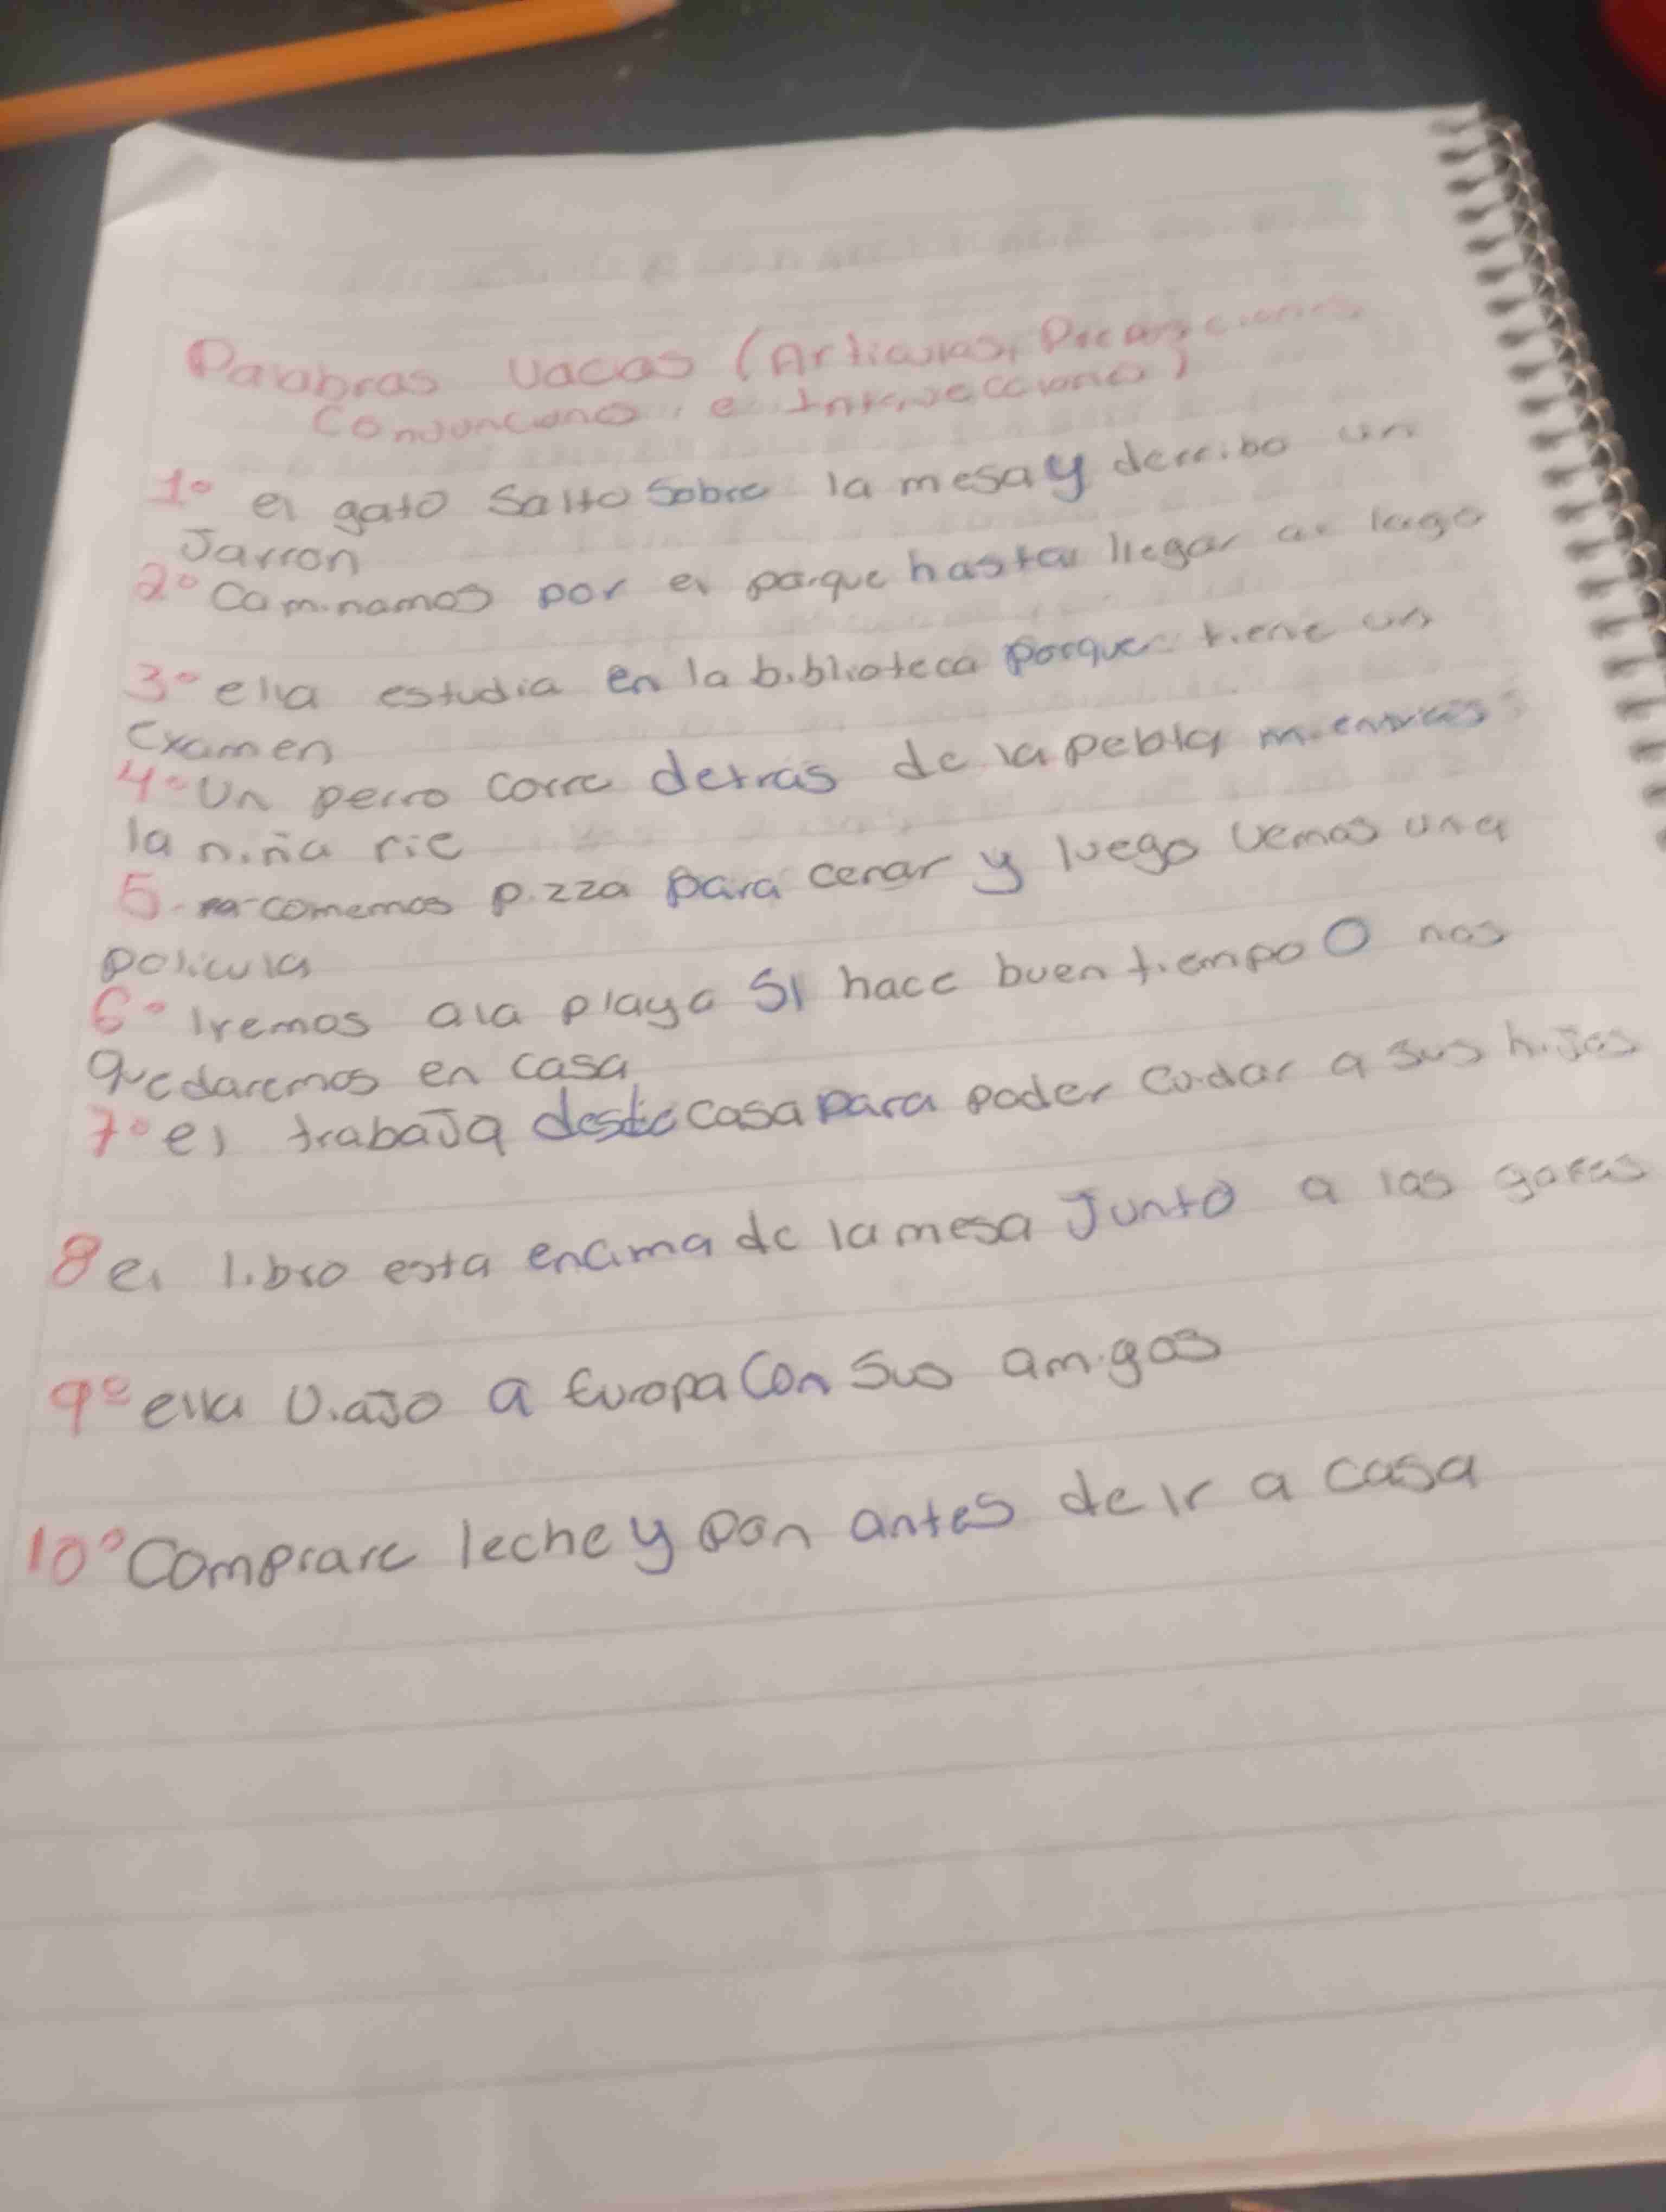 Palabras vacias (Articulos, Preposiciones
Conjunciones, e Interjecciones)
1° el gato salto sobre la mesa y derribo un
Jarron
2° Caminamos por el parque hasta llegar al lago
3° ella estudia en la biblioteca porque tiene un
examen
4° Un perro corre detras de la pebla mientras
la niña rie
5- comemos pizza para cenar y luego vemos una
policula
6° Iremos ala playa SI hace buen tiempo O nos
quedaremos en casa
7° el trabaJa desde casa para poder cuidar a sus hiJos
8 el libro esta encima de la mesa Junto a las gafas
9° ella viaJo a Europa Con sus amigos
10° Comprare leche y pan antes de ir a casa